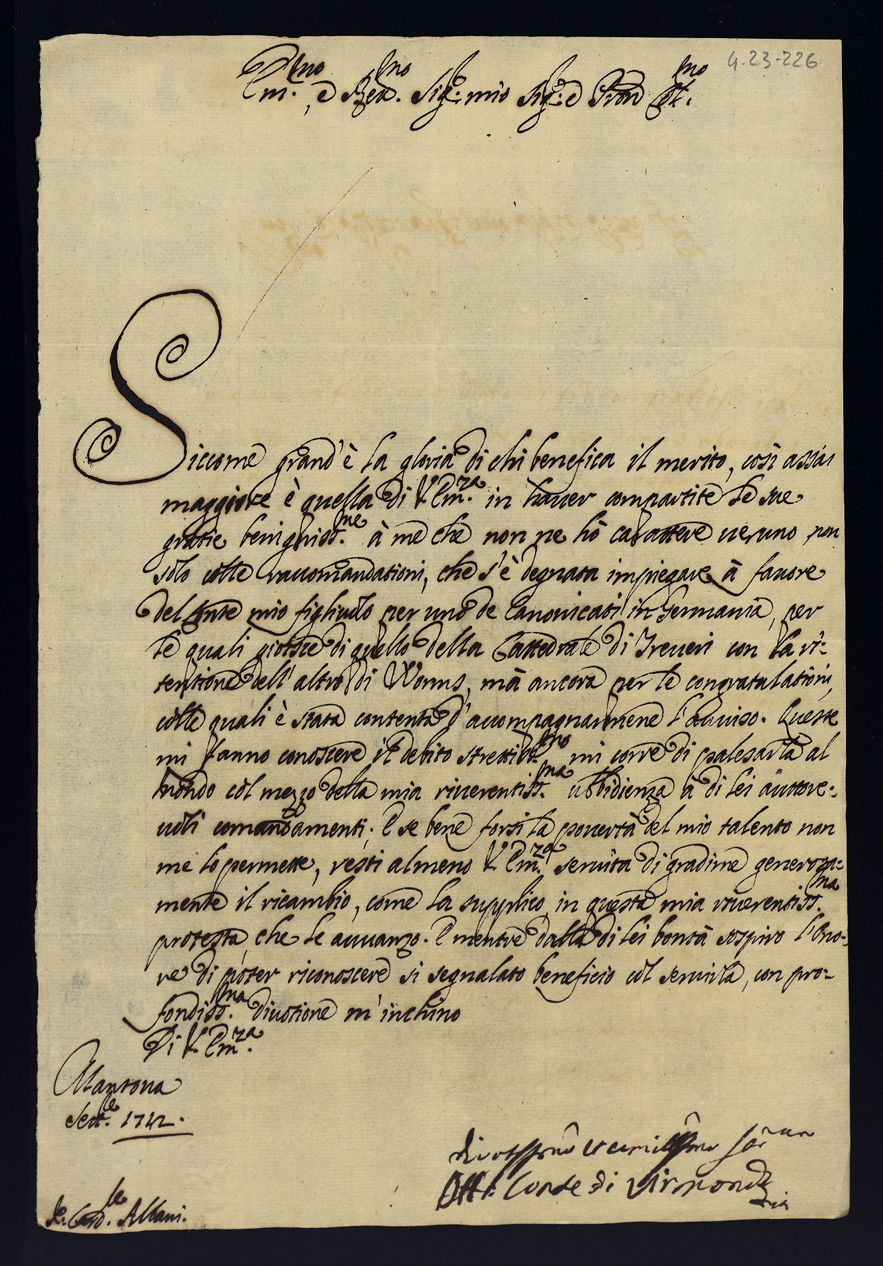 4-23-226
Em.mo e Rev.mo Sig.r mio Sig.r e Pron Col.mo
Siccome grand'è la gloria di chi benefica il merito, così assai
maggiore è quella di V. Em.za in haver compartite le sue
gratie benigniss.me à me che non ne hò carattere veruno, non
solo colle raccomandationi, che s'è degnata impiegare à favore
del mio figliuolo per uno de Canonicati in Germania, per
le quali gioisce di quello della Cattedrale di Treveri con la ri-
tentione dell'altro di Worms, mà ancora per le congratulationi,
colle quali è stata contenta d'accompagnarmene l'avviso. Queste
mi fanno conoscere il debito mi corre di palesarla al
mondo col mezzo della mia riverentiss.ma ubbidienza à di lei auttore-
voli comandamenti; E se bene forsi la povertà del mio talento non
me lo permette, resti almeno V. Em.za servita di gradirne generosa-
mente il ricambio, come la supplico, in questa mia riverentiss.ma
protesta, che le avvanzo. E mentre dalla di lei bontà sospiro l'Ono-
re di poter riconoscere si segnalato beneficio col servirla, con pro-
fondiss.ma divotione m'inchino
Di V. Em.za
Mantova
1712.
divotissimo et umilissimo
Conte di Virmond
Card.le Albani.